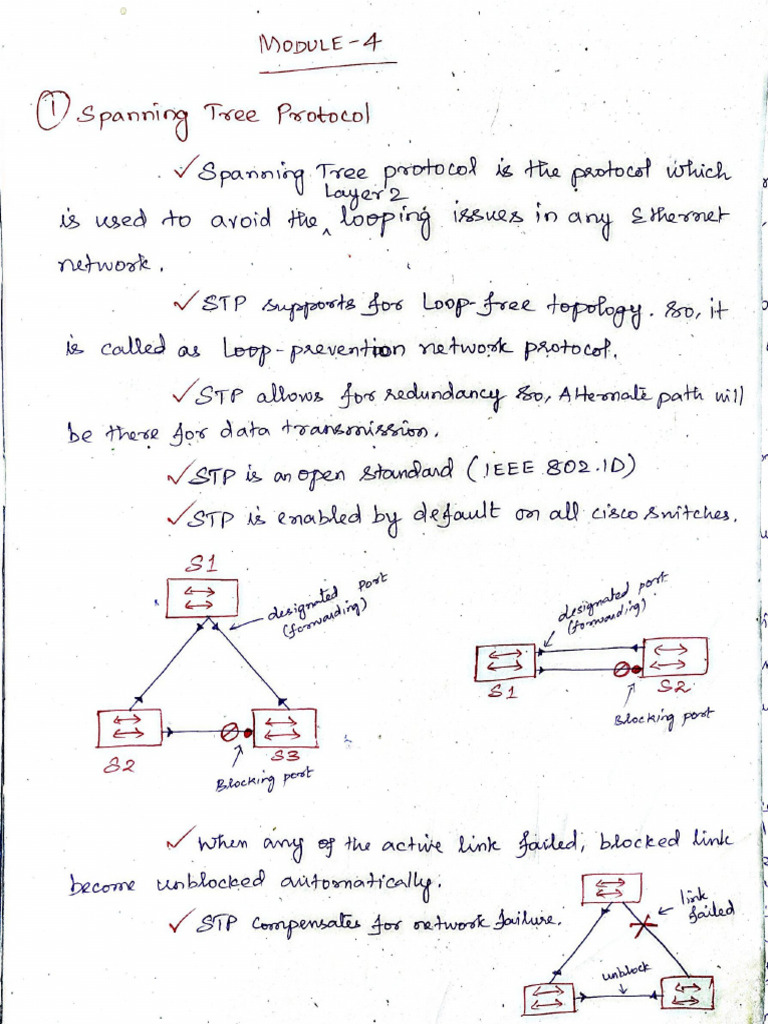 MODULE-4
① Spanning Tree Protocol
✓ Spanning Tree protocol is the protocol which
Layer 2
is used to avoid the ‸ looping issues in any Ethernet
network.
✓ STP supports for Loop-free topology. So, it
is called as Loop-prevention network protocol.
✓ STP allows for redundancy so, Alternate path will
be there for data transmission.
✓ STP is an open standard (IEEE 802.1D)
✓ STP is enabled by default on all cisco switches.
S1
designated port
(forwarding)
S2
S3
Blocking port
designated port
(forwarding)
S1
S2
Blocking port
✓ When any of the active link failed, blocked link
become unblocked automatically.
✓ STP compensates for network failure.
link
failed
unblock